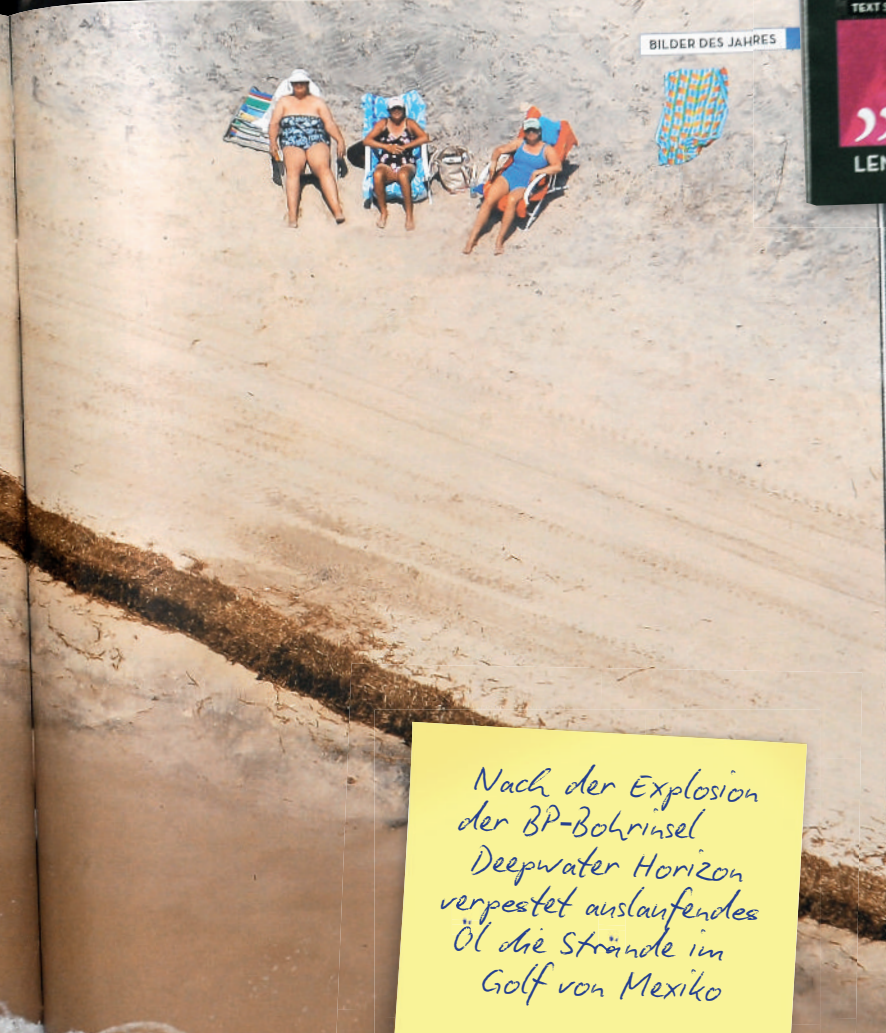 TEXT
BILDER DES JAHRES
Nach der Explosion
der BP-Bohrinsel
Deepwater Horizon
verpestet auslaufendes
Öl die Strände im
Golf von Mexiko